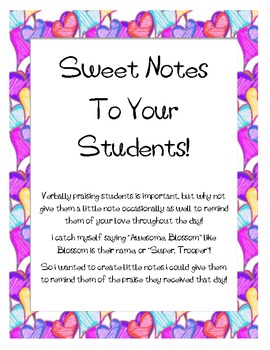 Sweet Notes
To Your
Students!
Verbally praising students is important, but why not
give them a little note occasionally as well to remind
them of your love throughout the day!
I catch myself saying "Awesome, Blossom" like
Blossom is their name, or "Super, Trooper"!
So I wanted to create little notes I could give them
to remind them of the praise they received that day!